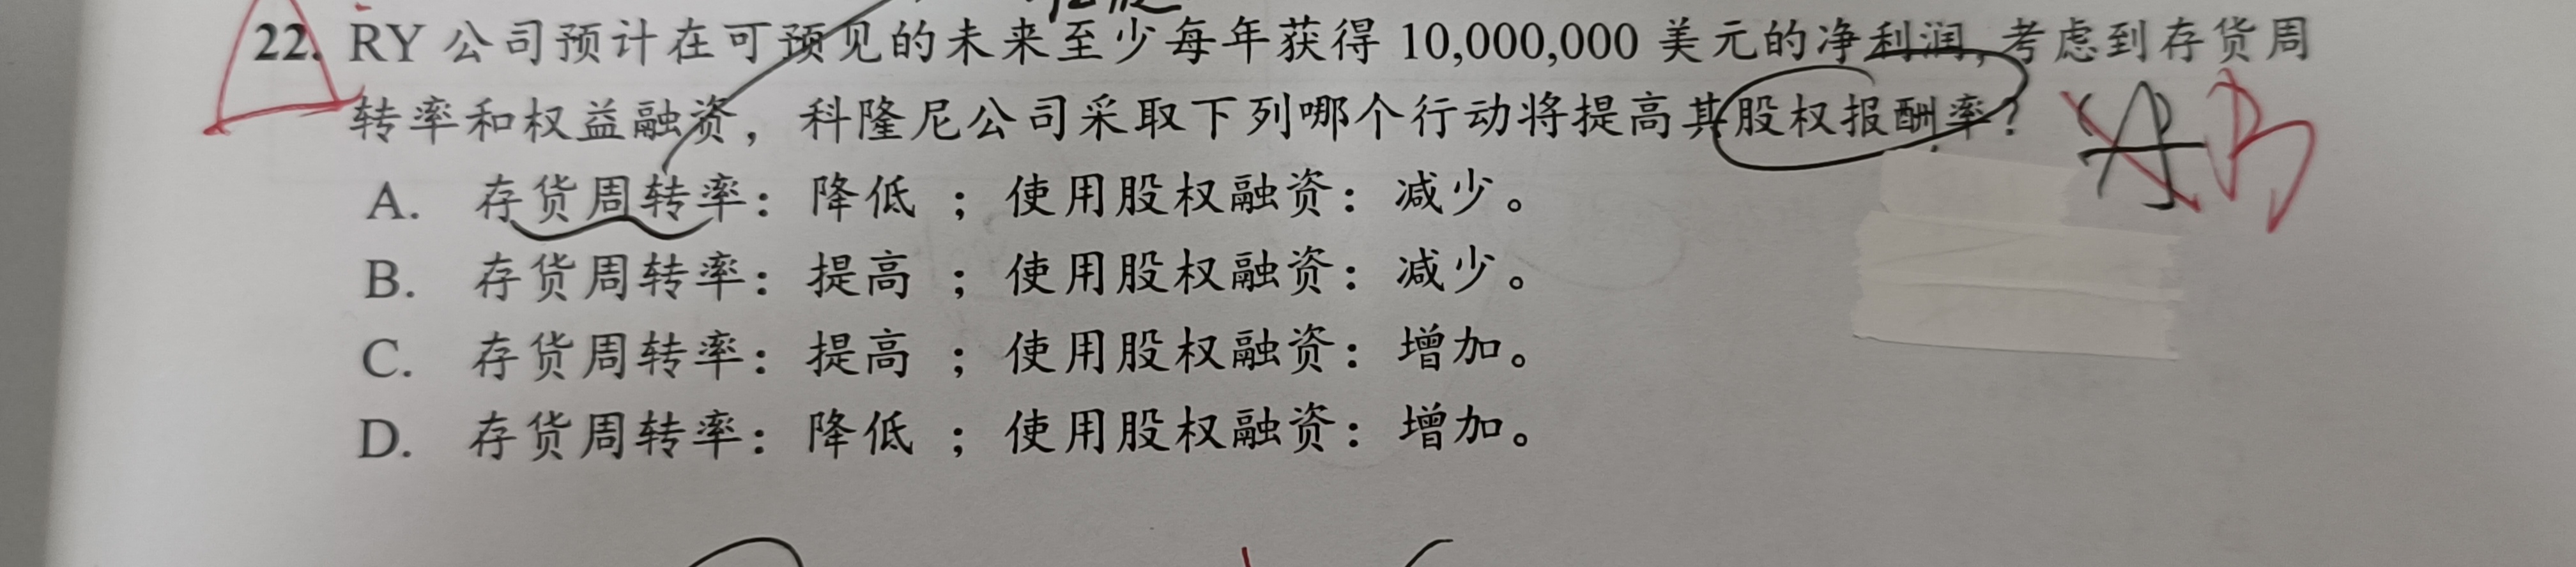 22. RY 公司预计在可预见的未来至少每年获得 10,000,000 美元的净利润,考虑到存货周
转率和权益融资，科隆尼公司采取下列哪个行动将提高其股权报酬率? A B
A. 存货周转率：降低 ；使用股权融资：减少。
B. 存货周转率：提高 ；使用股权融资：减少。
C. 存货周转率：提高 ；使用股权融资：增加。
D. 存货周转率：降低 ；使用股权融资：增加。